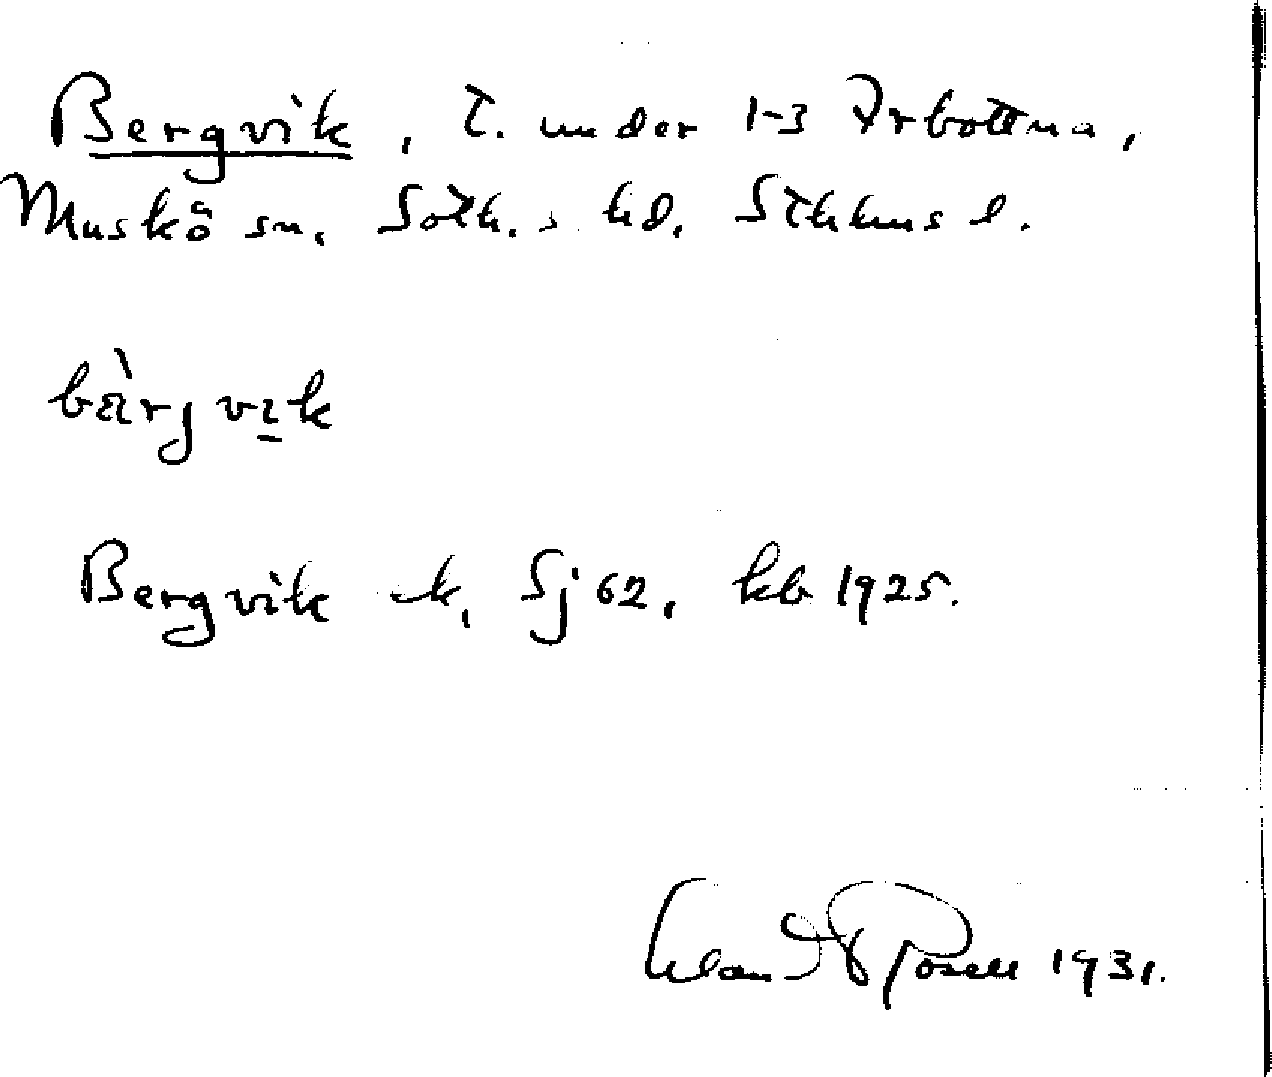 Bergvik, T. under 1-3 Arbottna,
Muskö sn. Soth.s hd. Sthlms l.
bärjvik
Bergvik Sj 62, kb 1925.
1931.